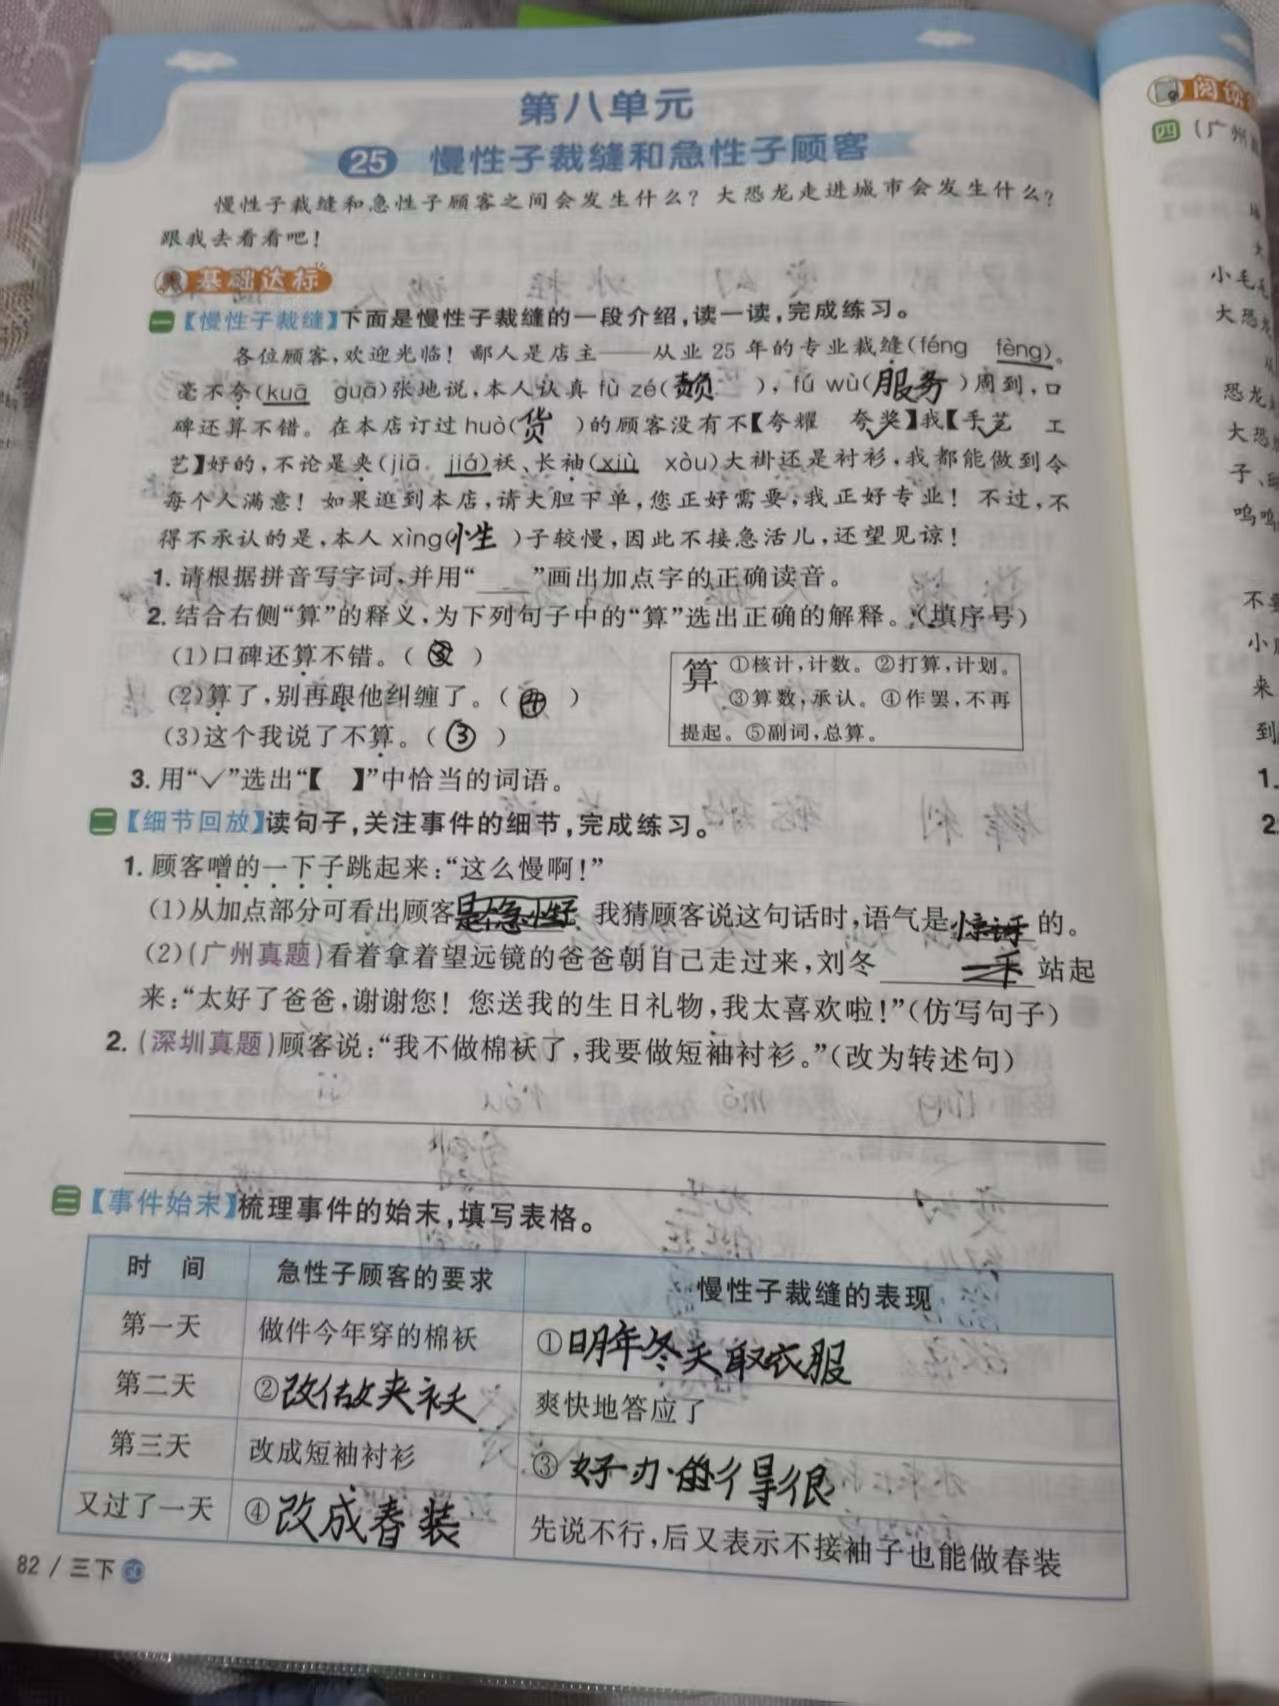 第八单元
25 慢性子裁缝和急性子顾客
慢性子裁缝和急性子顾客之间会发生什么？大恐龙走进城市会发生什么？
跟我去看看吧！
基础达标
一【慢性子裁缝】下面是慢性子裁缝的一段介绍，读一读，完成练习。
各位顾客，欢迎光临！鄙人是店主——从业 25 年的专业裁缝(féng fèng)。
毫不夸(kuā guā)张地说，本人认真 fù zé( )，fú wù(服务)周到，口
碑还算不错。在本店订过 huò(货)的顾客没有不【夸耀 夸奖✓】我【手艺✓ 工
艺】好的，不论是夹(jiā jiá)袄、长袖(xiù xòu)大褂还是衬衫，我都能做到令
每个人满意！如果逛到本店，请大胆下单，您正好需要，我正好专业！不过，不
得不承认的是，本人 xìng(性)子较慢，因此不接急活儿，还望见谅！
1. 请根据拼音写字词，并用“___”画出加点字的正确读音。
2. 结合右侧“算”的释义，为下列句子中的“算”选出正确的解释。（填序号）
(1)口碑还算不错。( )
(2)算了，别再跟他纠缠了。(④)
(3)这个我说了不算。(③)
算 ①核计，计数。②打算，计划。
③算数，承认。④作罢，不再
提起。⑤副词，总算。
3. 用“✓”选出“【 】”中恰当的词语。
二【细节回放】读句子，关注事件的细节，完成练习。
1. 顾客噌的一下子跳起来：“这么慢啊！”
(1)从加点部分可看出顾客是个急性子，我猜顾客说这句话时，语气是惊讶的。
(2)(广州真题)看着拿着望远镜的爸爸朝自己走过来，刘冬______站起
来：“太好了爸爸，谢谢您！您送我的生日礼物，我太喜欢啦！”（仿写句子）
2. (深圳真题)顾客说：“我不做棉袄了，我要做短袖衬衫。”（改为转述句）
三【事件始末】梳理事件的始末，填写表格。
时 间 急性子顾客的要求 慢性子裁缝的表现
第一天 做件今年穿的棉袄 ①明年冬天取衣服
第二天 ②改做夹袄 爽快地答应了
第三天 改成短袖衬衫 ③好办的得很
又过了一天 ④改成春装 先说不行，后又表示不接袖子也能做春装
82 / 三下
阅读
四 (广州
小毛
大恐龙
恐龙
大恐
子、
呜呜
不要
小
来
到
1.
2.